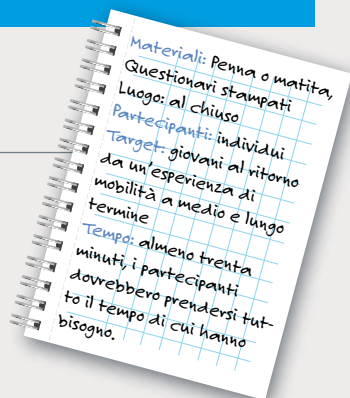 Materiali: Penna o matita,
Questionari stampati
Luogo: al chiuso
Partecipanti: individui
Target: giovani al ritorno
da un'esperienza di
mobilità a medio e lungo
termine
Tempo: almeno trenta
minuti, i partecipanti
dovrebbero prendersi tut-
to il tempo di cui hanno
bisogno.